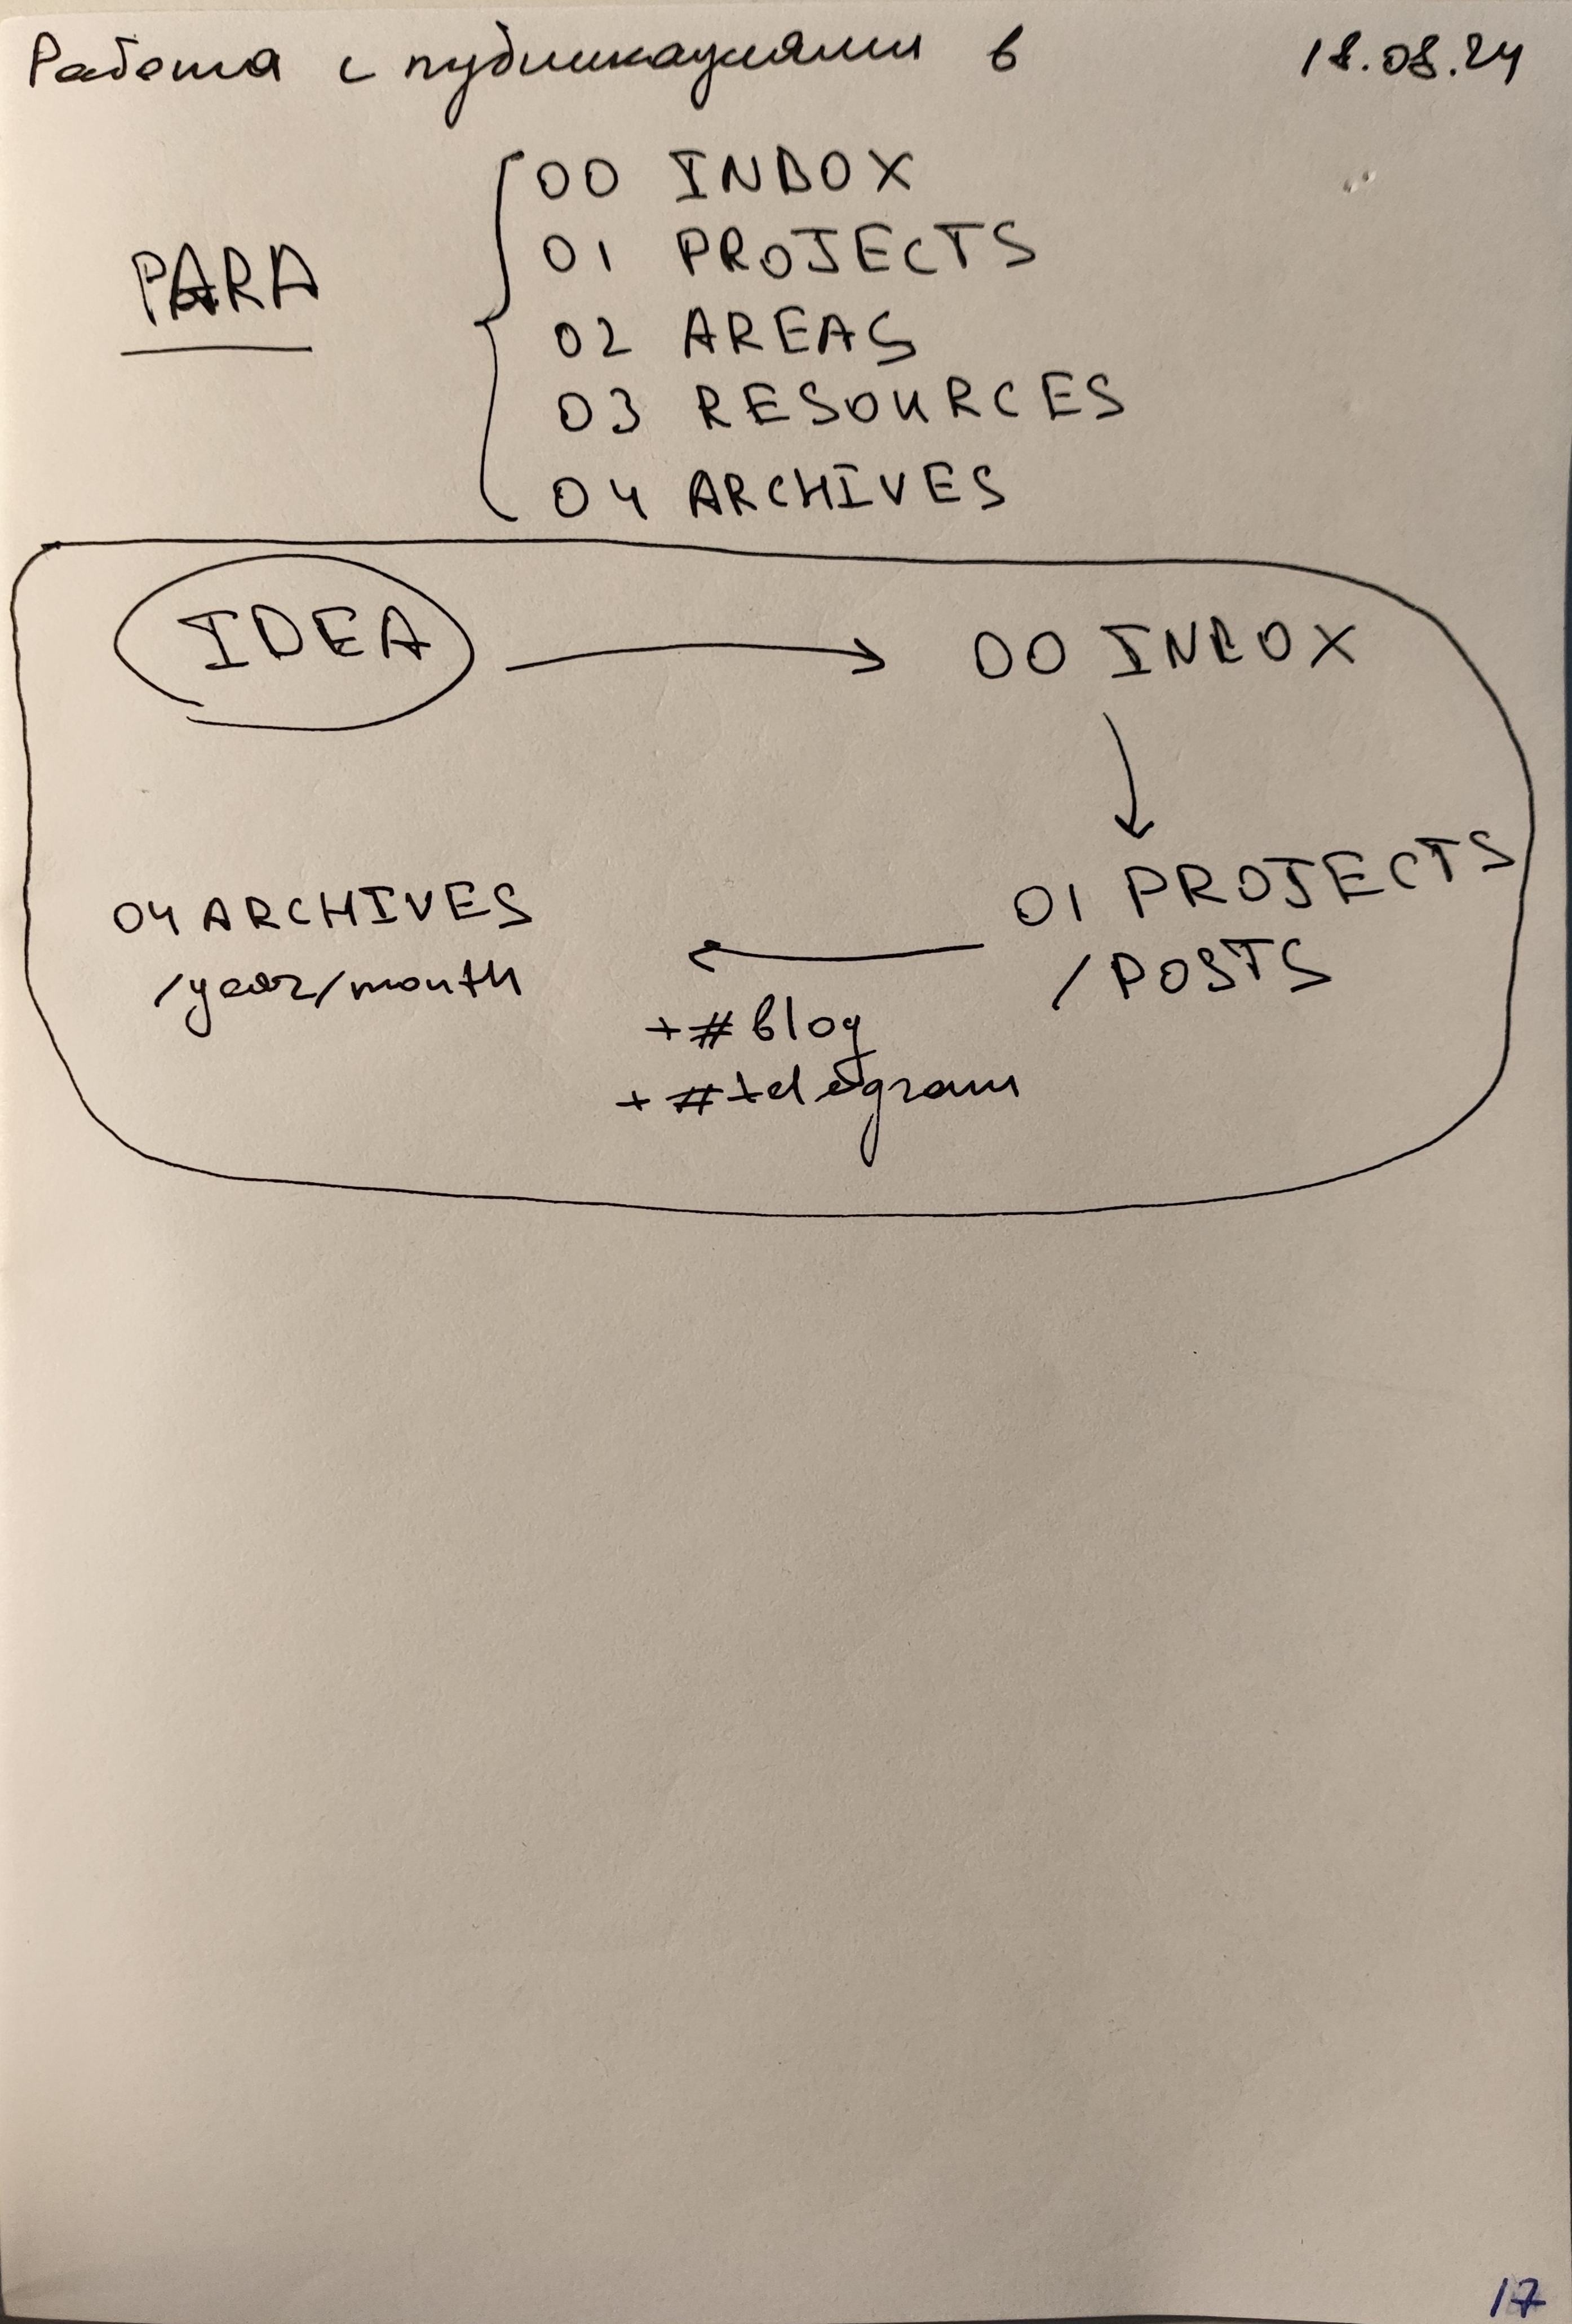 Работа с публикациями в 18.08.24
PARA
00 INBOX
01 PROJECTS
02 AREAS
03 RESOURCES
04 ARCHIVES
IDEA → 00 INBOX
↓
01 PROJECTS
/POSTS
←
+#blog
+#telegram
04 ARCHIVES
/year/month
17